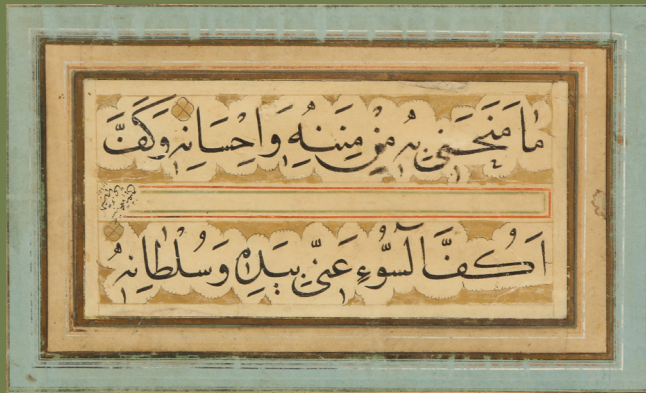 مَا مَنَحَنِي بِهِ مِنْ مِنَنِهِ وَاِحْسَانِهِ وَكَفَّ
اَكُفَّ السُّوۤءِ عَنِّي بِيَدِهِ وَسُلْطَانِهِ